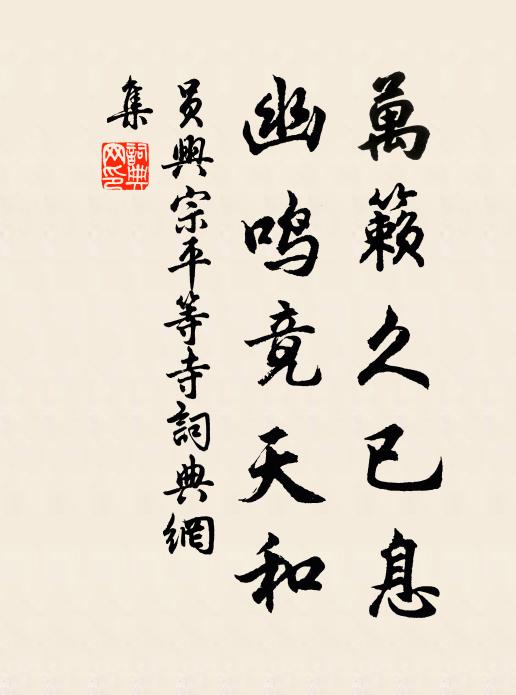 萬籟久已息
幽鳴竟天和
員興宗平等寺詞典網
集
詞典
网印